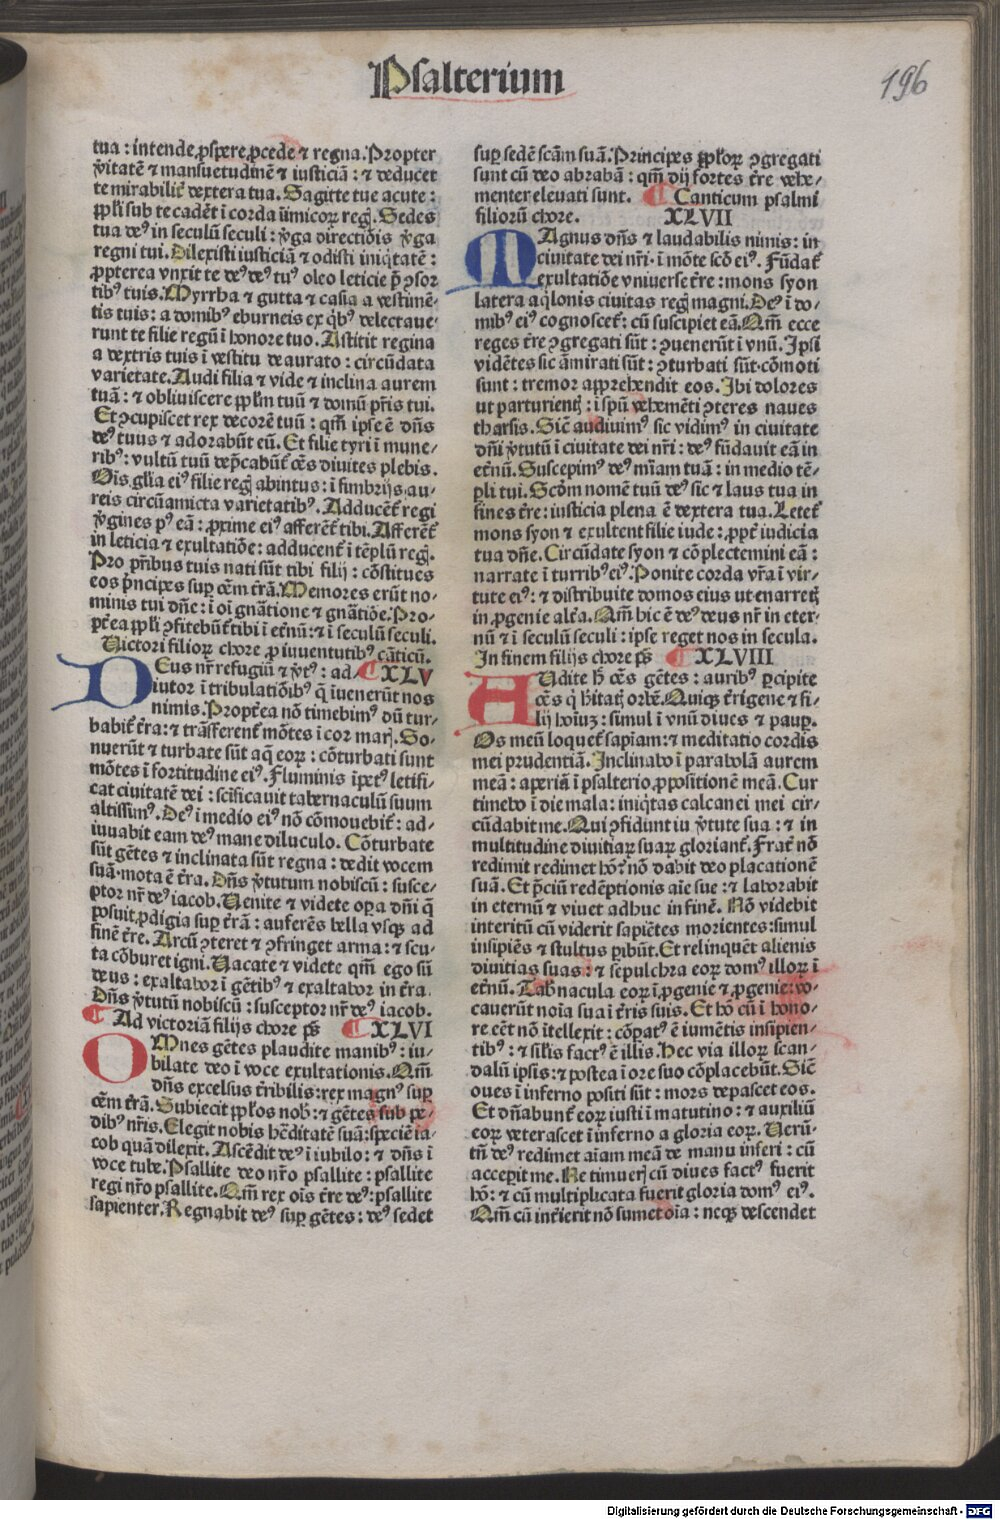 Psalterium
196
tua : intende ꝓspere ꝓcede ⁊ regna. Propter
v̾itatē ⁊ mansuetudinē ⁊ iusticiā : ⁊ deducet
te mirabilit̾ dextera tua. Sagitte tue acute :
pp̄li sub te cadēt ī corda inīmicoꝝ reg̃. Sedes
tua deꝰ in seculū seculi : v̾ga directiōis v̾ga
regni tui. Dilexisti iusticiā ⁊ odisti iniq̄tatē :
ꝓpterea vnxit te deꝰ deꝰ tuꝰ oleo leticie p̄ ↄsor
tibꝰ tuis. Myrrha ⁊ gutta ⁊ casia a vestimē⸗
tis tuis : a domibꝰ eburneis ex q̄bꝰ delectaue⸗
runt te filie regū ī honore tuo. Astitit regina
a dextris tuis ī vestitu deaurato : circūdata
varietate. Audi filia ⁊ vide ⁊ inclina aurem
tuā : ⁊ obliuiscere pp̄lm tuū ⁊ domū pr̄is tui.
Et ↄcupiscet rex decorē tuū : qm̄ ip̄e ē dn̄s
deꝰ tuus ⁊ adorabūt eū. Et filie tyri ī mune⸗
ribꝰ : vultū tuū dep̄cabūt̃ oēs diuites plebis.
Oīs gl̄ia eiꝰ filie reg̃ abintus : ī fimbrijs au⸗
reis circūamicta varietatibꝰ. Adducēt̃ regi
v̾gines pꝰ eā : ꝓxime eiꝰ afferēt̃ tibi. Afferēt̃
in leticia ⁊ exultatiōe : adducent̃ ī tēplū reg̃.
Pro pr̄ibus tuis nati sūt tibi filij : cōstitues
eos p̄ncipes sup̄ oēm t̄rā. Memores erūt no⸗
minis tui dn̄e : ī oī gn̄atione ⁊ gn̄atiōe. Pro⸗
pt̄ea pp̄li ↄfitebūt̃ tibi ī et̄nū : ⁊ ī seculū seculi.
Victori filioꝝ chore ꝓ iuuentutibꝰ cāticū.
DEus nr̄ refugiū ⁊ v̾tꝰ : ad⸗ ¶ XLV
iutor ī tribulatiōibꝰ q̄ īuenerūt nos
nimis. Propt̄ea nō timebimꝰ dū tur⸗
babit̃ t̄ra : ⁊ trāsferent̃ mōtes ī cor marꝭ. So⸗
nuerūt ⁊ turbate sūt aq̄ eoꝝ : cōturbati sunt
mōtes ī fortitudine eiꝰ. Fluminis īpetꝰ letifi⸗
cat ciuitatē dei : scīficauit tabernaculū suum
altissimꝰ. Deꝰ ī medio eiꝰ nō cōmouebit̃ : ad⸗
iuuabit eam deꝰ mane diluculo. Cōturbate
sūt gētes ⁊ inclinata sūt regna : dedit vocem
suā · mota ē t̄ra. Dn̄s v̾tutum nobiscū : susce⸗
ptor nr̄ deꝰ iacob. Uenite ⁊ videte oꝑa dn̄i q̄
posuit ꝓdigia sup̄ t̄rā : auferēs bella vsqꝫ ad
finē t̄re. Arcū ↄteret ⁊ ↄfringet arma : ⁊ scu⸗
ta cōburet igni. Uacate ⁊ videte qm̄ ego sū
deus : exaltabor ī gētibꝰ ⁊ exaltabor in t̄ra.
Dn̄s v̾tutū nobiscū : susceptor nr̄ deꝰ iacob.
¶ Ad victoriā filijs chore ps̄ ¶ XLVI
OMnes gētes plaudite manibꝰ : iu⸗
bilate deo ī voce exultationis. Qm̄
dn̄s excelsus t̄ribilis : rex magnꝰ sup̄
oēm t̄rā. Subiecit pp̄los nob̄ : ⁊ gētes sub pe⸗
dibꝰ nr̄is. Elegit nobis h̄editatē suā : speciē ia⸗
cob quā dilexit. Ascēdit deꝰ ī iubilo : ⁊ dn̄s ī
voce tube. Psallite deo nr̄o psallite : psallite
regi nr̄o psallite. Qm̄ rex oīs t̄re deꝰ : psallite
sapienter. Regnabit deꝰ sup̄ gētes : deꝰ sedet
sup̄ sedē scām suā. Principes pp̄loꝝ ↄgregati
sunt cū deo abrahā : qm̄ dij fortes t̄re vehe⸗
menter eleuati sunt. ¶ Canticum psalmi
filiorū chore. XLVII
MAgnus dn̄s ⁊ laudabilis nimis : in
ciuitate dei nr̄i · ī mōte scō eiꝰ. Fūdat̃
exultatiōe vniuerse t̄re : mons syon
latera aq̄lonis ciuitas reg̃ magni. Deꝰ ī do⸗
mibꝰ eiꝰ cognoscet̃ : cū suscipiet eā. Qm̄ ecce
reges t̄re ↄgregati sūt : ↄuenerūt ī vnū. Ipsi
vidētes sic āmirati sūt : ↄturbati sūt · cōmoti
sunt : tremor apprehendit eos. Ibi dolores
ut parturientꝭ : ī spū vehemēti ↄteres naues
tharsis. Sic̄ audiuimꝰ sic vidimꝰ in ciuitate
dn̄i v̾tutū ī ciuitate dei nr̄i : deꝰ fūdauit eā in
et̄nū. Suscepimꝰ deꝰ mīam tuā : in medio tē⸗
pli tui. Scd̄m nomē tuū deꝰ sic ⁊ laus tua in
fines t̄re : iusticia plena ē dextera tua. Letet̃
mons syon ⁊ exultent filie iude : ꝓpt̄ iudicia
tua dn̄e. Circūdate syon ⁊ cōplectemini eā :
narrate ī turribꝰ eiꝰ. Ponite corda vr̄a ī vir⸗
tute eiꝰ : ⁊ distribuite domos eius ut enarretꝭ
in ꝓgenie alt̄a. Qm̄ hic ē deꝰ deus nr̄ in eter⸗
nū ⁊ ī seculū seculi : ipse reget nos in secula.
In finem filijs chore ps̄ ¶ XLVIII
AUdite h̄ oēs gētes : auribꝰ ꝑcipite
oēs q̄ h̄itatꝭ orbē. Quiqꝫ t̄rigene ⁊ fi⸗
lij hoīuꝫ : simul ī vnū diues ⁊ pauꝑ.
Os meū loquet̃ sapīam : ⁊ meditatio cordis
mei prudentiā. Inclinabo ī parabolā aurem
meā : aperiā ī psalterio ꝓpositionē meā. Cur
timebo ī die mala : iniq̄tas calcanei mei cir⸗
cūdabit me. Qui ↄfidunt iu v̾tute sua : ⁊ in
multitudine diuitiaꝝ suaꝝ gloriant̃. Frat̄ nō
redimit redimet hō : nō dabit deo placationē
suā. Et p̄ciū redēptionis aīe sue : ⁊ laborabit
in eternū ⁊ viuet adhuc in finē. Nō videbit
interitū cū viderit sapiētes morientes : simul
insipiēs ⁊ stultus ꝑibūt. Et relinquēt alienis
diuitias suas : ⁊ sepulchra eoꝝ domꝰ illoꝝ ī
et̄nū. Tab̄nacula eoꝝ ī ꝓgenie ⁊ ꝓgenie : vo⸗
cauerūt noīa sua ī t̄ris suis. Et hō cū ī hono⸗
re eēt nō ītellexit : cōpatꝰ ē iumētis insipien⸗
tibꝰ : ⁊ sil̄is factꝰ ē illis. Hec via illoꝝ scan⸗
dalū ipsis : ⁊ postea ī ore suo cōplacebūt. Sic̄
oues ī inferno positi sūt : mors depascet eos.
Et dn̄abunt̃ eoꝝ iusti ī matutino : ⁊ auxiliū
eoꝝ veterascet ī inferno a gloria eoꝝ. Uerū⸗
tn̄ deꝰ redimet aīam meā de manu inferi : cū
acceꝑit me. Ne timuerꝭ cū diues factꝰ fuerit
hō : ⁊ cū multiplicata fuerit gloria domꝰ eiꝰ.
Qm̄ cū int̄ierit nō sumet oīa : neqꝫ descendet
Digitalisierung gefördert durch die Deutsche Forschungsgemeinschaft - DFG